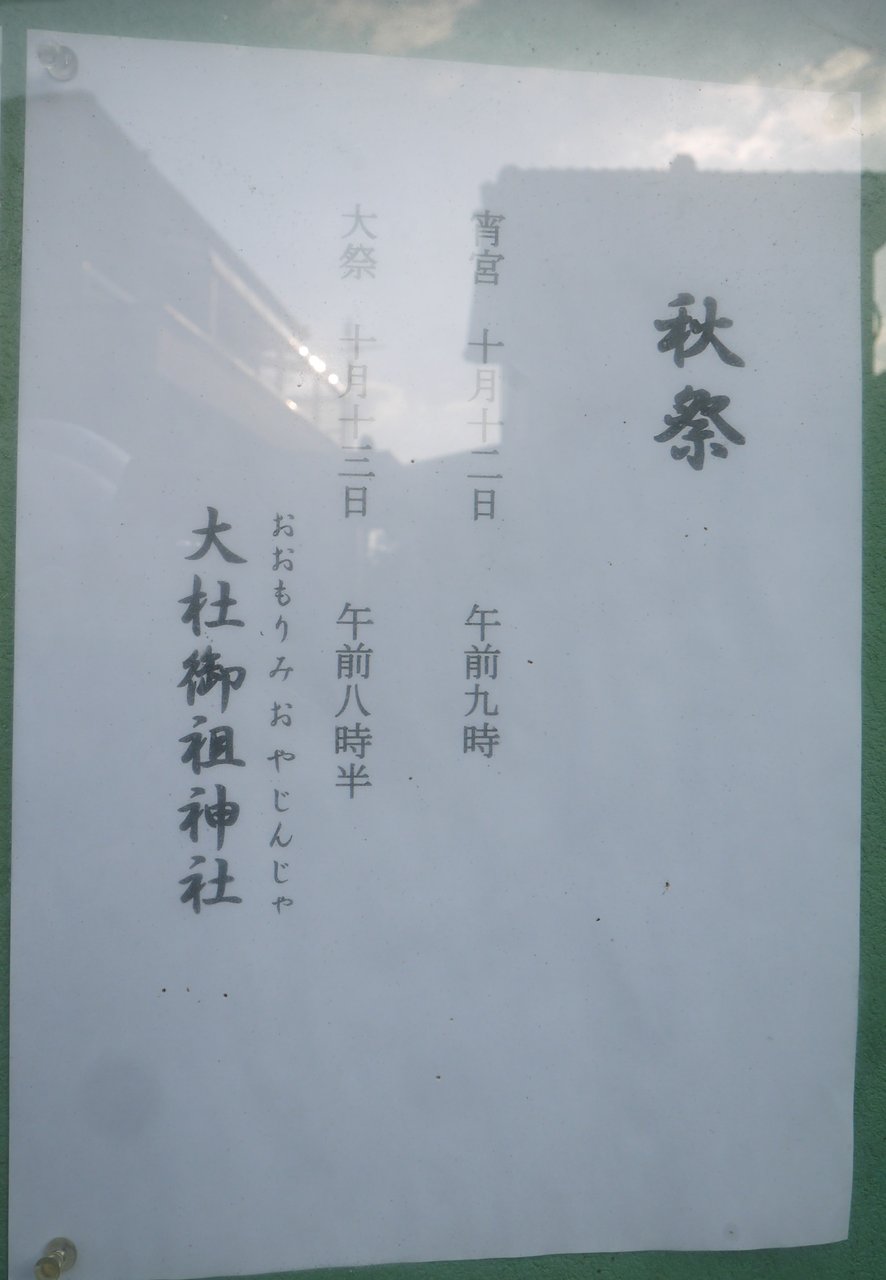 秋祭
宵宮　十月十二日　午前九時
大祭　十月十三日　午前八時半
おおもりみおやじんじゃ
大杜御祖神社